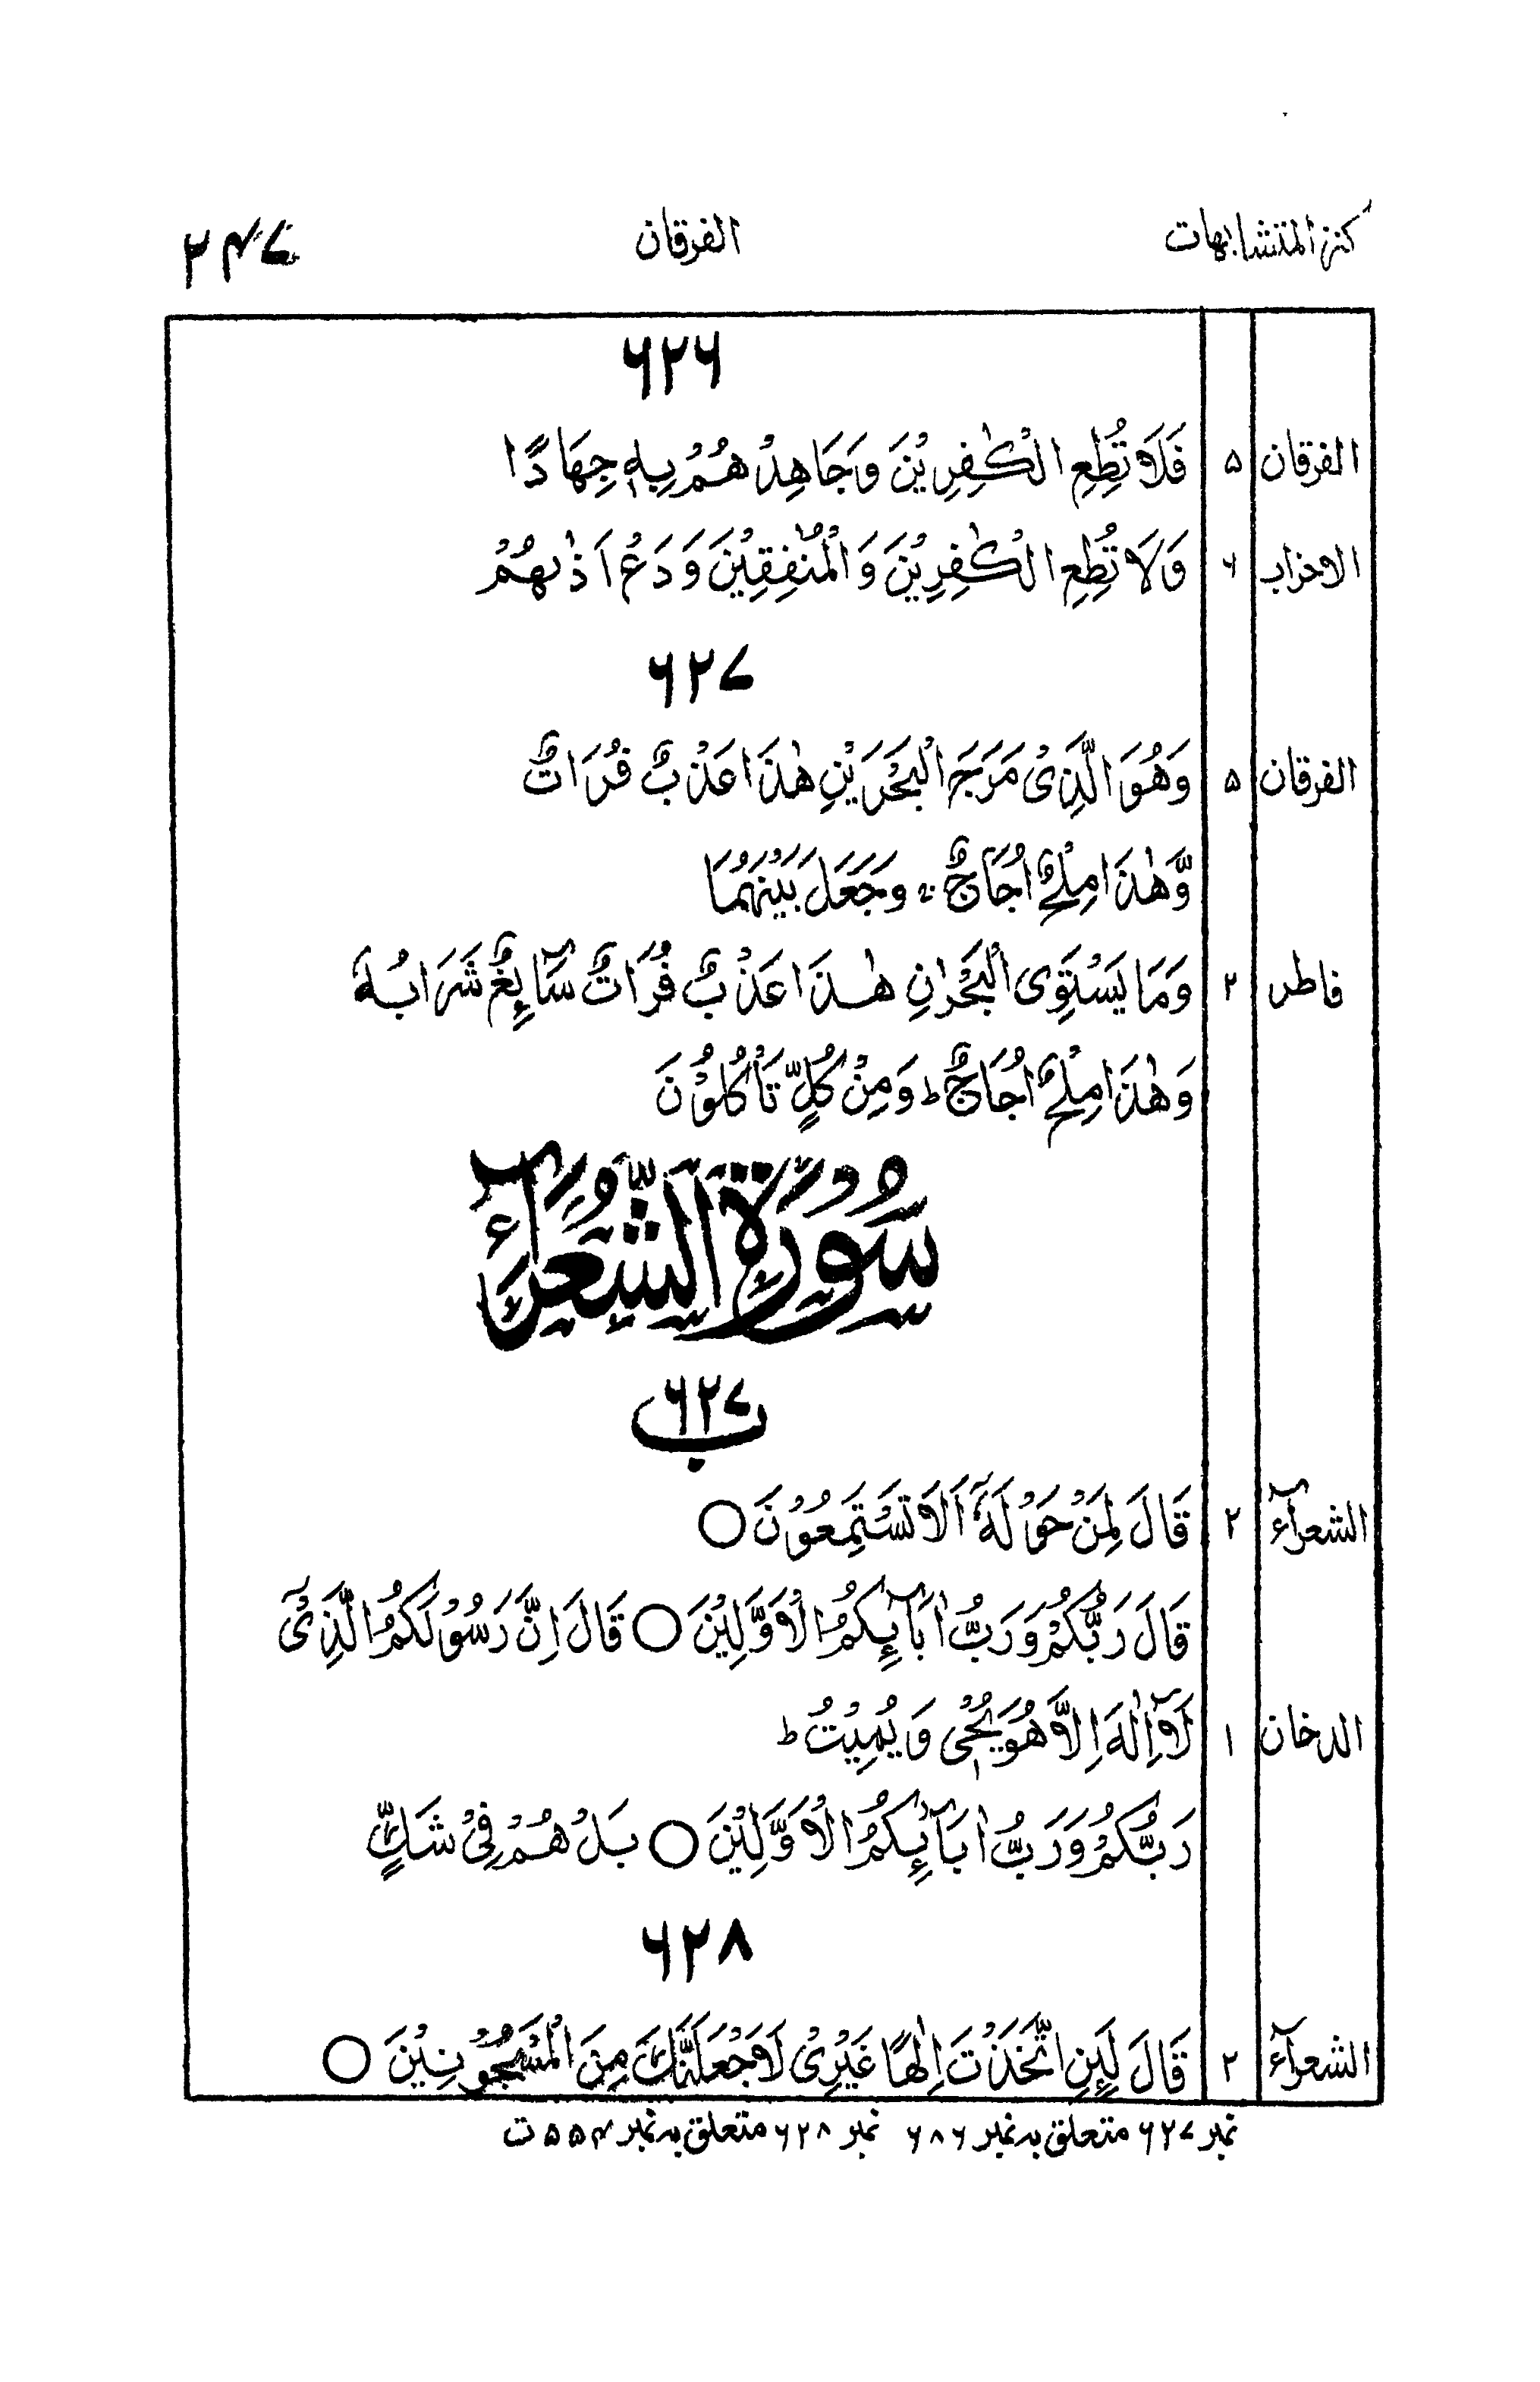 كنز المتشابهات الفرقان ۲۴۷
۶۲۶
الفرقان ۵ فَلَا تُطِعِ الْكٰفِرِيْنَ وَجَاهِدْهُمْ بِهٖ جِهَادًا
الاحزاب ۶ وَلَا تُطِعِ الْكٰفِرِيْنَ وَالْمُنٰفِقِيْنَ وَدَعْ اَذٰىهُمْ
۶۲۷
الفرقان ۵ وَهُوَ الَّذِىْ مَرَجَ الْبَحْرَيْنِ هٰذَا عَذْبٌ فُرَاتٌ
وَّهٰذَا مِلْحٌ اُجَاجٌ ۚ وَجَعَلَ بَيْنَهُمَا
فاطر ۲ وَمَا يَسْتَوِى الْبَحْرٰنِ هٰذَا عَذْبٌ فُرَاتٌ سَآئِغٌ شَرَابُهٗ
وَهٰذَا مِلْحٌ اُجَاجٌ ؕ وَمِنْ كُلٍّ تَاْكُلُوْنَ
سُوْرَةُ الشُّعَرَآءِ
۶۲۷ ب
الشعرآء ۲ قَالَ لِمَنْ حَوْلَهٗٓ اَلَا تَسْتَمِعُوْنَ ○
قَالَ رَبُّكُمْ وَرَبُّ اٰبَآئِكُمُ الْاَوَّلِيْنَ ○ قَالَ اِنَّ رَسُوْلَكُمُ الَّذِىْٓ
الدخان ۱ لَآ اِلٰهَ اِلَّا هُوَ يُحْىٖ وَيُمِيْتُ ؕ
رَبُّكُمْ وَرَبُّ اٰبَآئِكُمُ الْاَوَّلِيْنَ ○ بَلْ هُمْ فِىْ شَكٍّ
۶۲۸
الشعرآء ۲ قَالَ لَئِنِ اتَّخَذْتَ اِلٰهًا غَيْرِىْ لَاَجْعَلَنَّكَ مِنَ الْمَسْجُوْنِيْنَ ○
نمبر ۶۲۷ متعلق بہ نمبر ۶۸۶ نمبر ۶۲۸ متعلق بہ نمبر ۵۵۴ ت